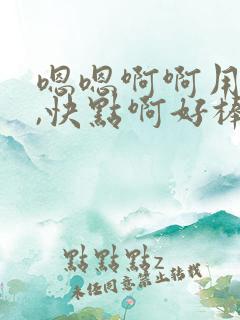 嗯嗯啊啊用
,快點啊好棒
點點點z
未经同意禁止转载